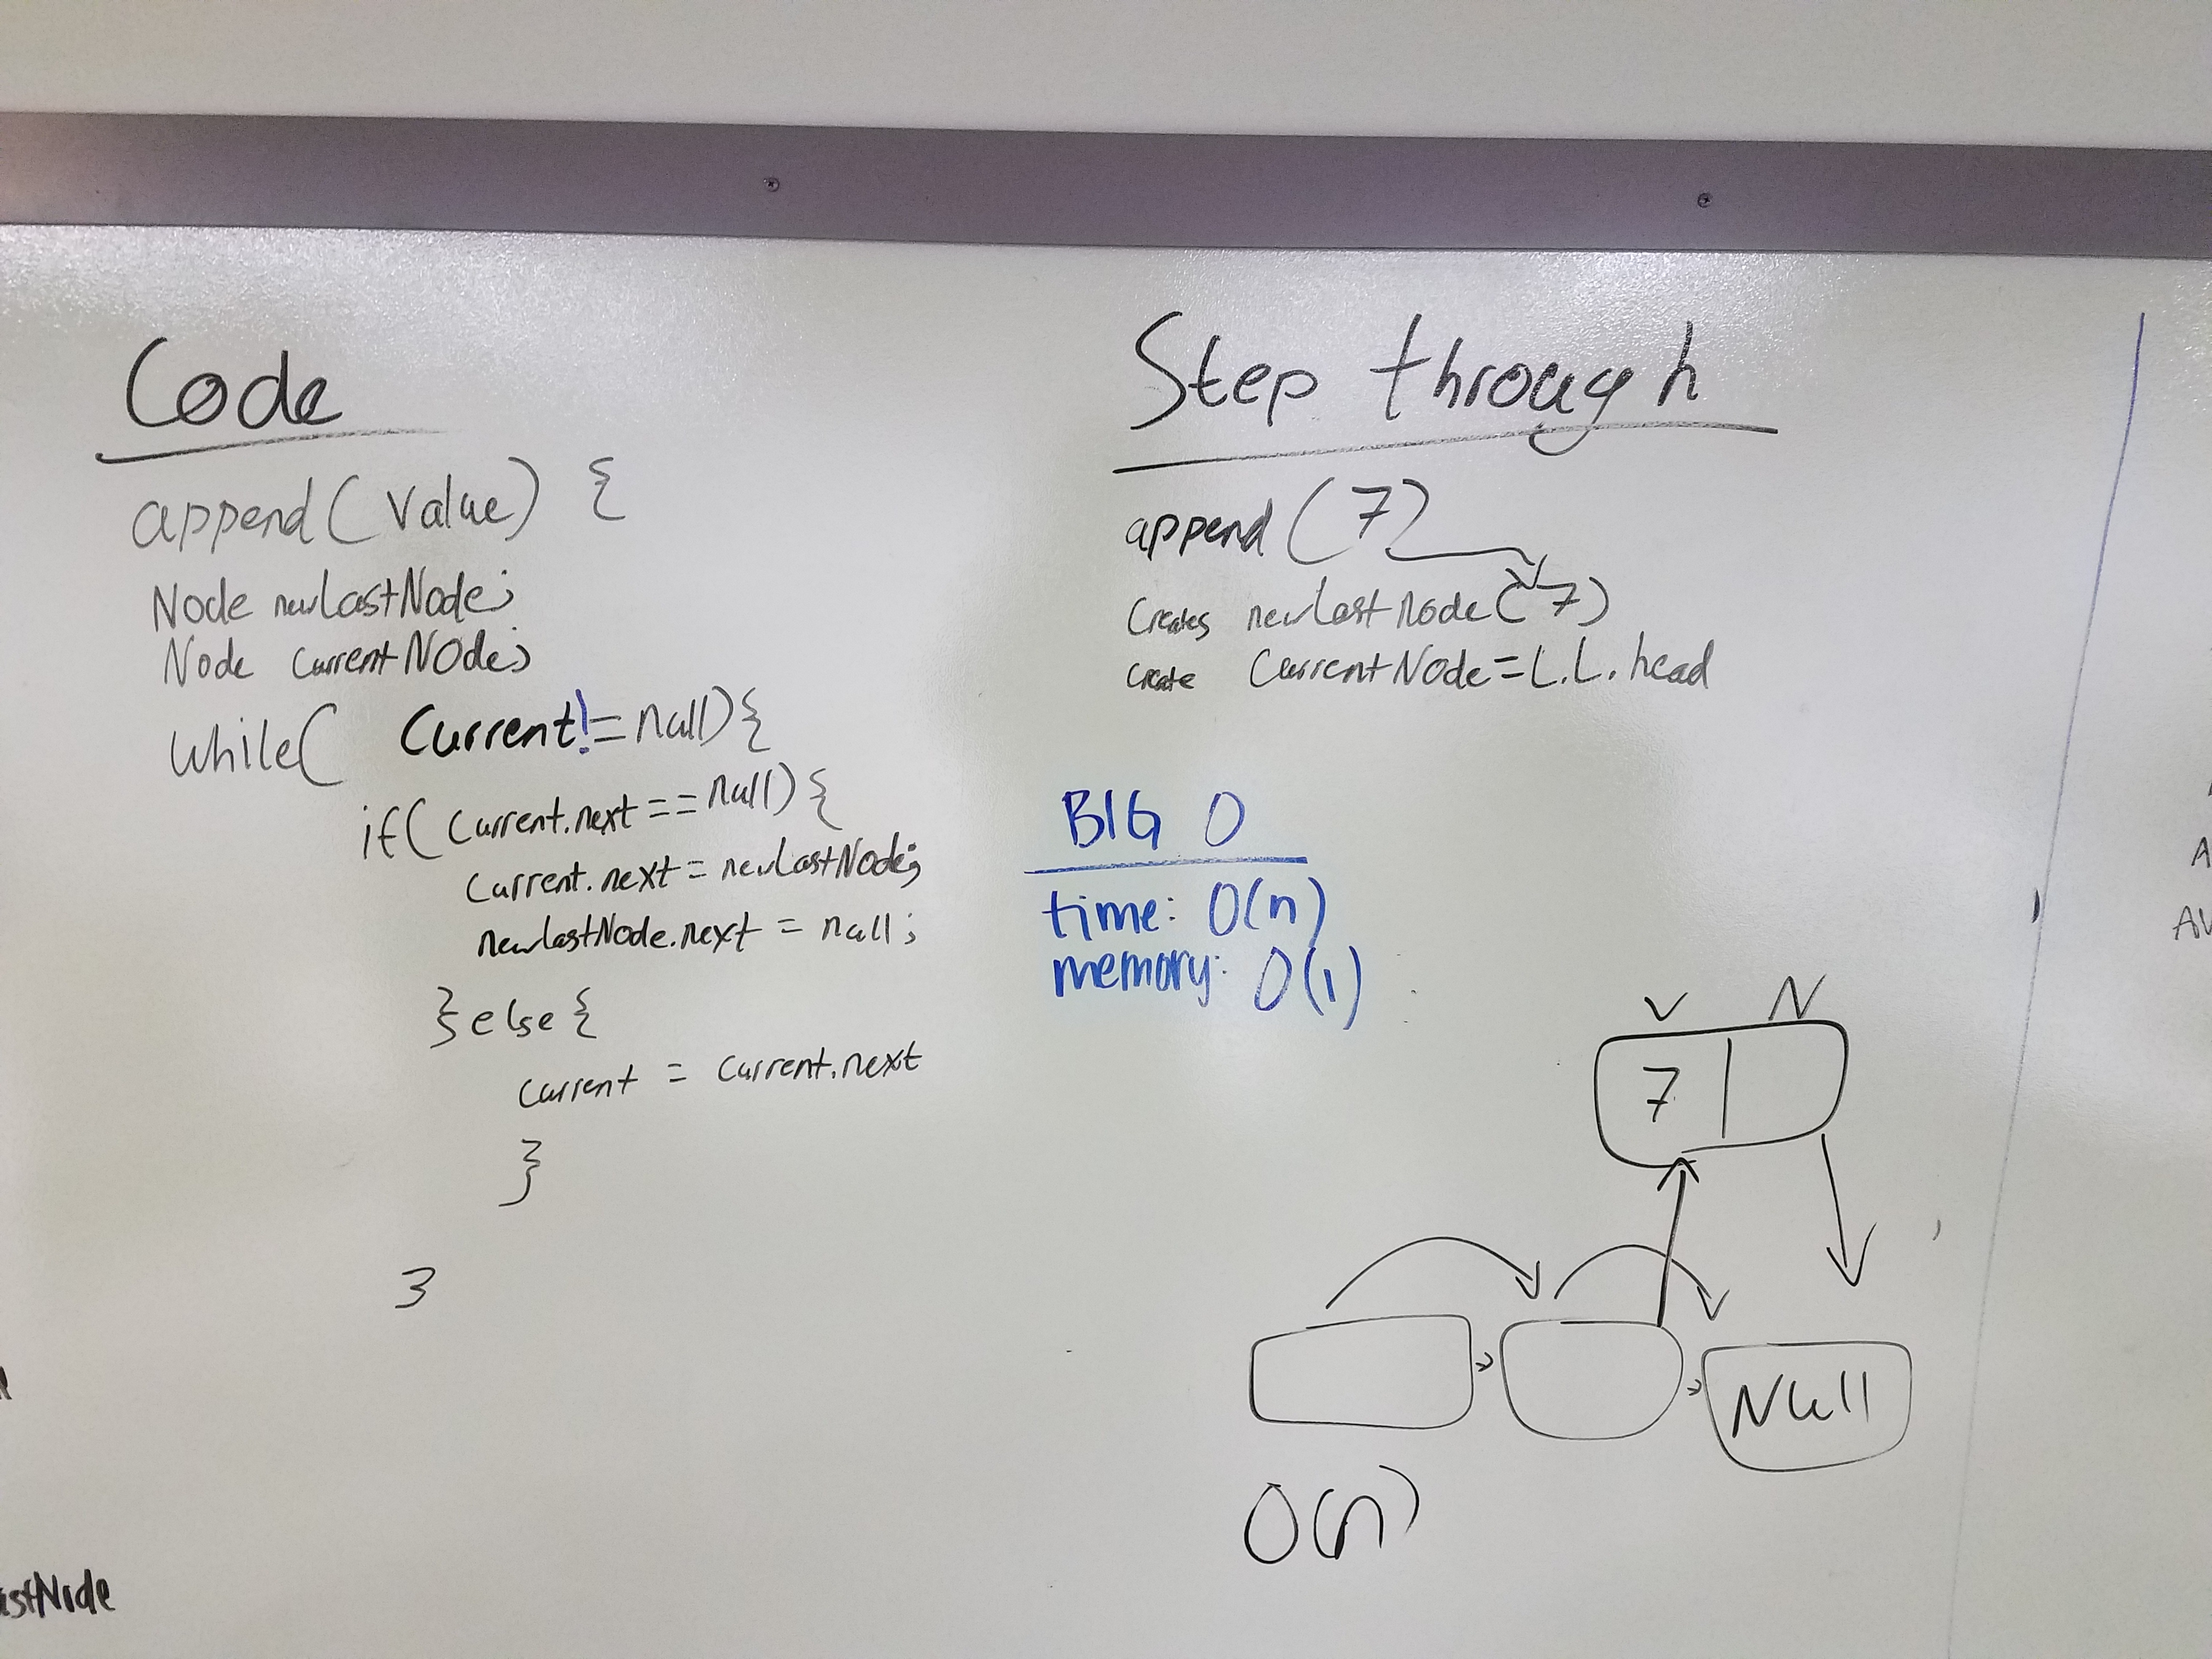 Code
append(value) {
Node newLastNode;
Node currentNode;
while( Current!=null){
if(Current.next==null){
Current.next=newLastNode;
newlastNode.next = null;
}else{
current = current.next
}
}
Step through
append(7)
Creates newLastNode(7)
create CurrentNode=L.L.head
BIG O
time: O(n)
memory: O(1)
V N
7
Null
O(n)
astNode